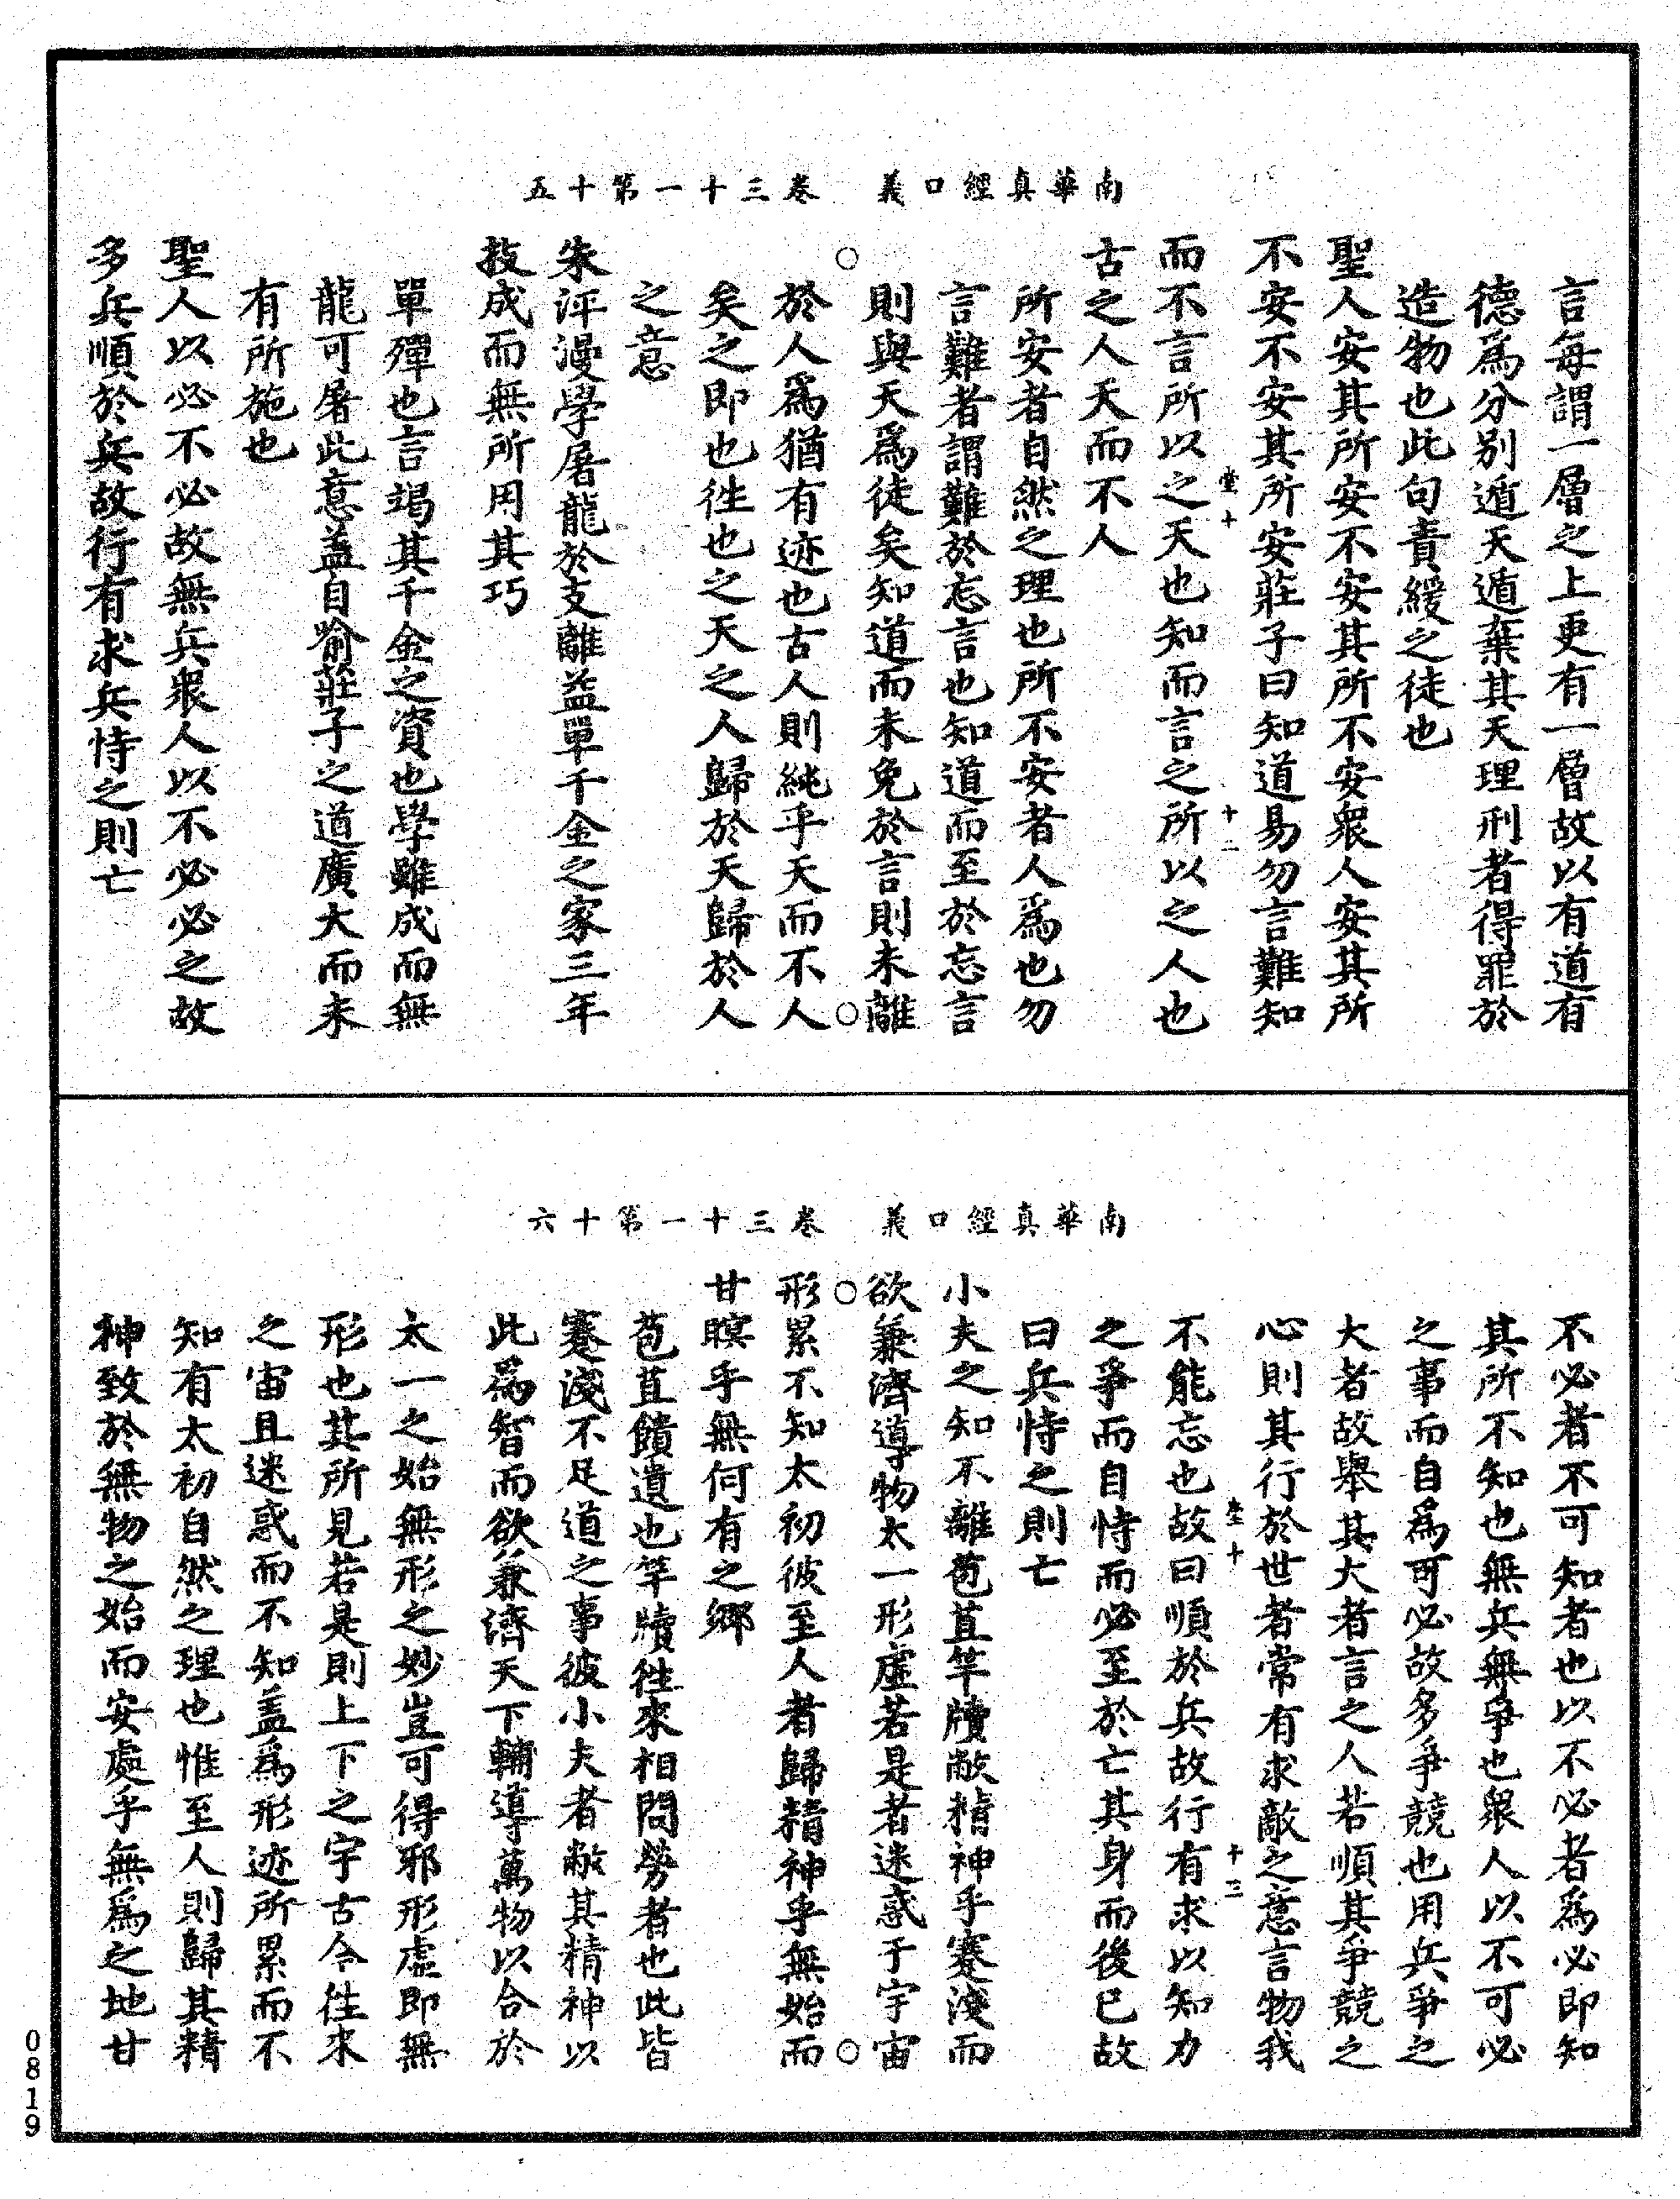 南華真經口義　卷三十一第十五
言每謂一層之上更有一層故以有道有
德為分別遁天遁棄其天理刑者得罪於
造物也此句責緩之徒也
聖人安其所安不安其所不安衆人安其所
不安不安其所安莊子曰知道易勿言難知
而不言所以之天也知而言之所以之人也
古之人天而不人
所安者自然之理也所不安者人為也勿
言難者謂難於忘言也知道而至於忘言
則與天為徒矣知道而未免於言則未離
於人為猶有迹也古人則純乎天而不人
矣之即也徃也之天之人歸於天歸於人
之意
朱泙漫學屠龍於支離益單千金之家三年
技成而無所用其巧
單殫也言竭其千金之資也學雖成而無
龍可屠此意蓋自喻莊子之道廣大而未
有所施也
聖人以必不必故無兵衆人以不必必之故
多兵順於兵故行有求兵恃之則亡
十二
南華真經口義　卷三十一第十六
不必者不可知者也以不必者為必即知
其所不知也無兵無爭也衆人以不可必
之事而自為可必故多爭競也用兵爭之
大者故舉其大者言之人若順其爭競之
心則其行於世者常有求敵之意言物我
不能忘也故曰順於兵故行有求以知力
之爭而自恃而必至於亡其身而後已故
曰兵恃之則亡
小夫之知不離苞苴竿牘敝精神乎蹇淺而
欲兼濟導物太一形虛若是者迷惑于宇宙
形累不知太初彼至人者歸精神乎無始而
甘瞑乎無何有之鄉
苞苴饋遺也竿牘徃來相問勞者也此皆
蹇淺不足道之事彼小夫者敝其精神以
此為智而欲兼濟天下輔導萬物以合於
太一之始無形之妙豈可得邪形虛即無
形也其所見若是則上下之宇古今徃來
之宙且迷惑而不知蓋為形迹所累而不
知有太初自然之理也惟至人則歸其精
神致於無物之始而安處乎無為之地甘
十三
0819